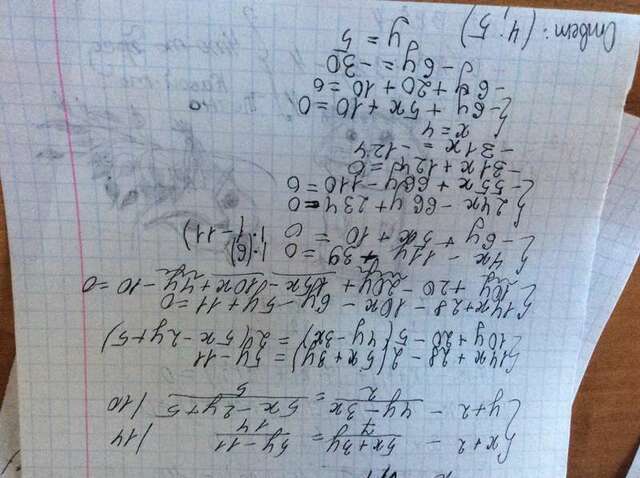 { x+2 - (5x+3y)/7 = (5y-11)/14 /14
{ y+2 - (4y-3x)/2 = (5x-2y+5)/5 /10
{ 14x+28-2(5x+3y)=5y-11
{ 10y+20-5(4y-3x)=2(5x-2y+5)
{ 14x+28-10x-6y-5y+11=0
{ 10y+20-20y+15x-10x+4y-10=0
{ 4x-11y+39=0 |·(6)
{ -6y+5x+10=0 |·(-11)
{ 24x-66y+234=0
{ -55x+66y-110=0
-31x+124=0
-31x=-124
{ x=4
{ -6y+5x+10=0
-6y+20+10=0
-6y=-30
y=5
Ответ: (4; 5)